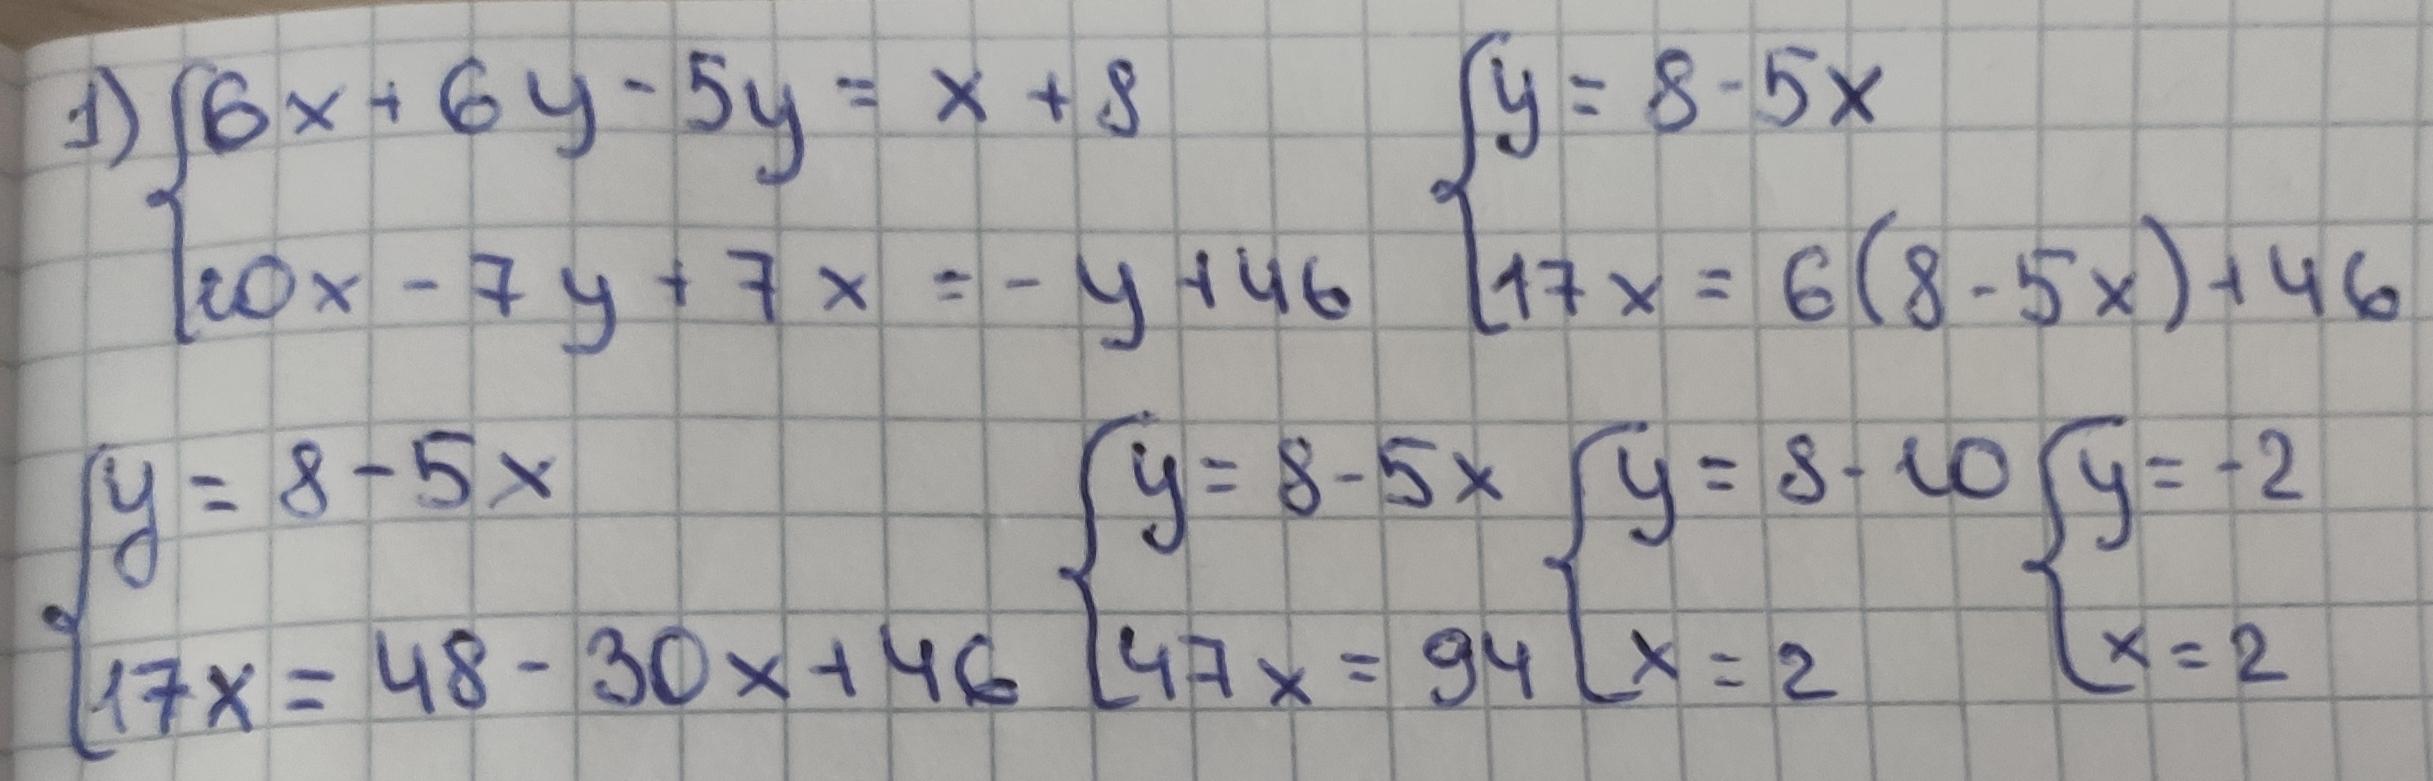 1) {6x + 6y - 5y = x + 8
{10x - 7y + 7x = - y + 46
{y = 8 - 5x
{17x = 6(8 - 5x) + 46
{y = 8 - 5x
{17x = 48 - 30x + 46
{y = 8 - 5x
{47x = 94
{y = 8 - 10
{x = 2
{y = -2
{x = 2